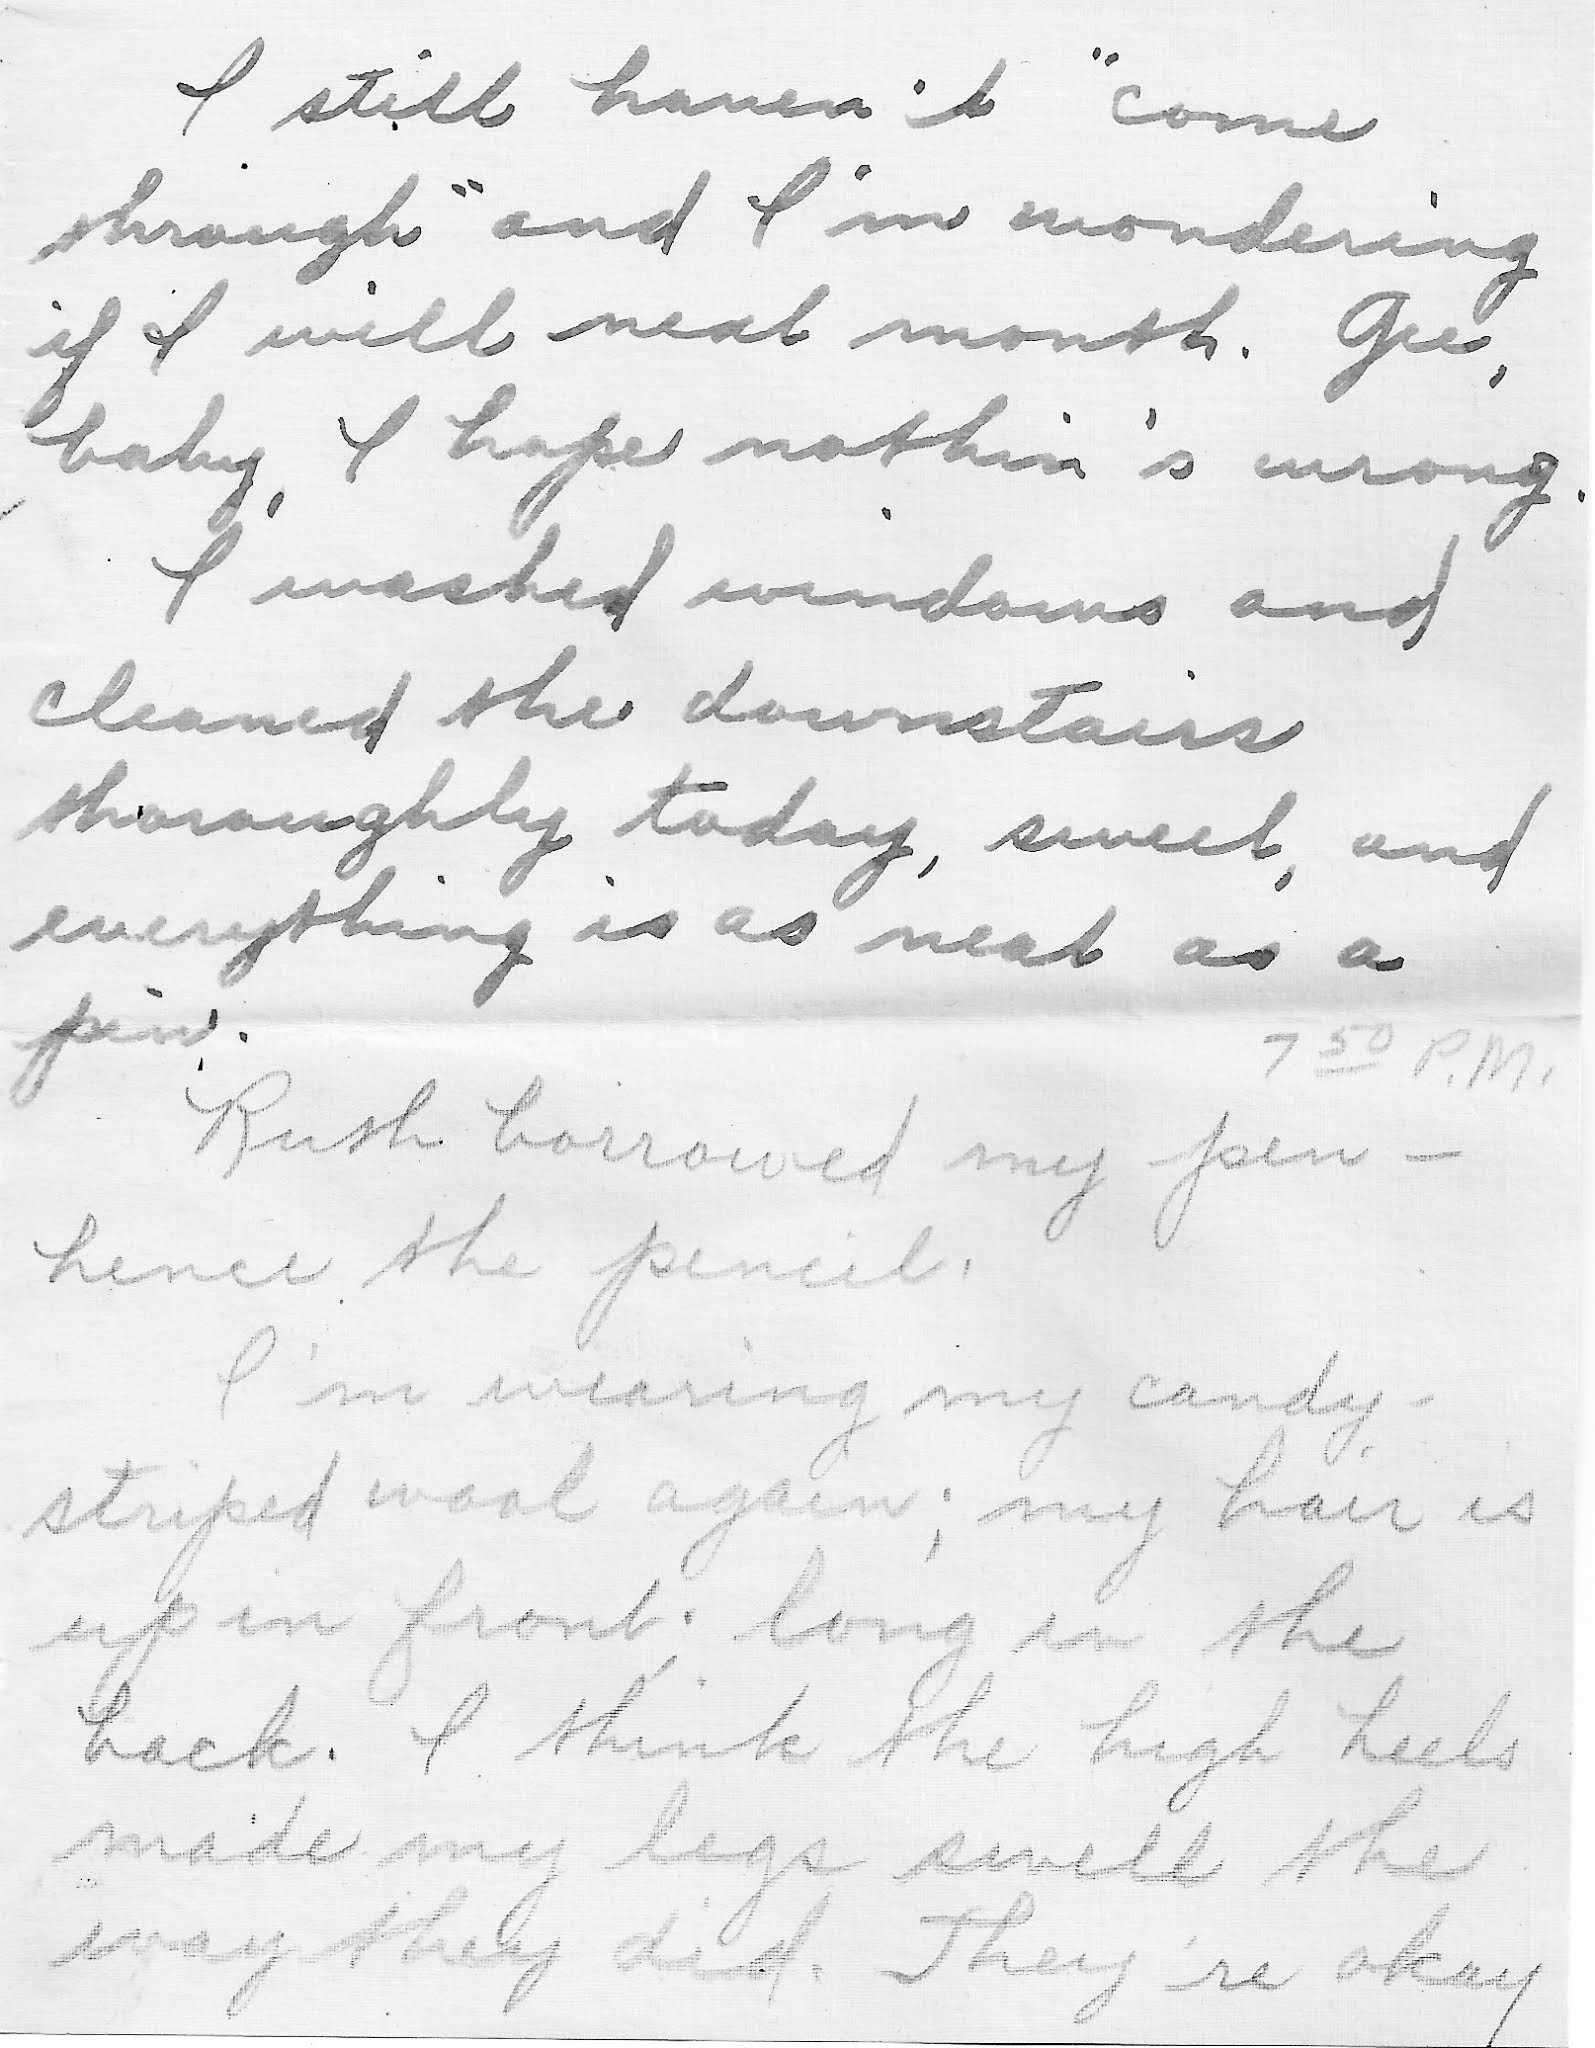 I still haven't "come
through" and I'm wondering
if I will next month. Gee,
baby, I hope nothin's wrong.
I washed windows and
cleaned the downstairs
thoroughly today, sweet, and
everything is as neat as a
pin.
7 50 P.M.
Ruth borrowed my pen -
hence the pencil.
I'm wearing my candy-
striped wool again; my hair is
up in front; long in the
back. I think the high heels
made my legs swell the
way they did. They're okay